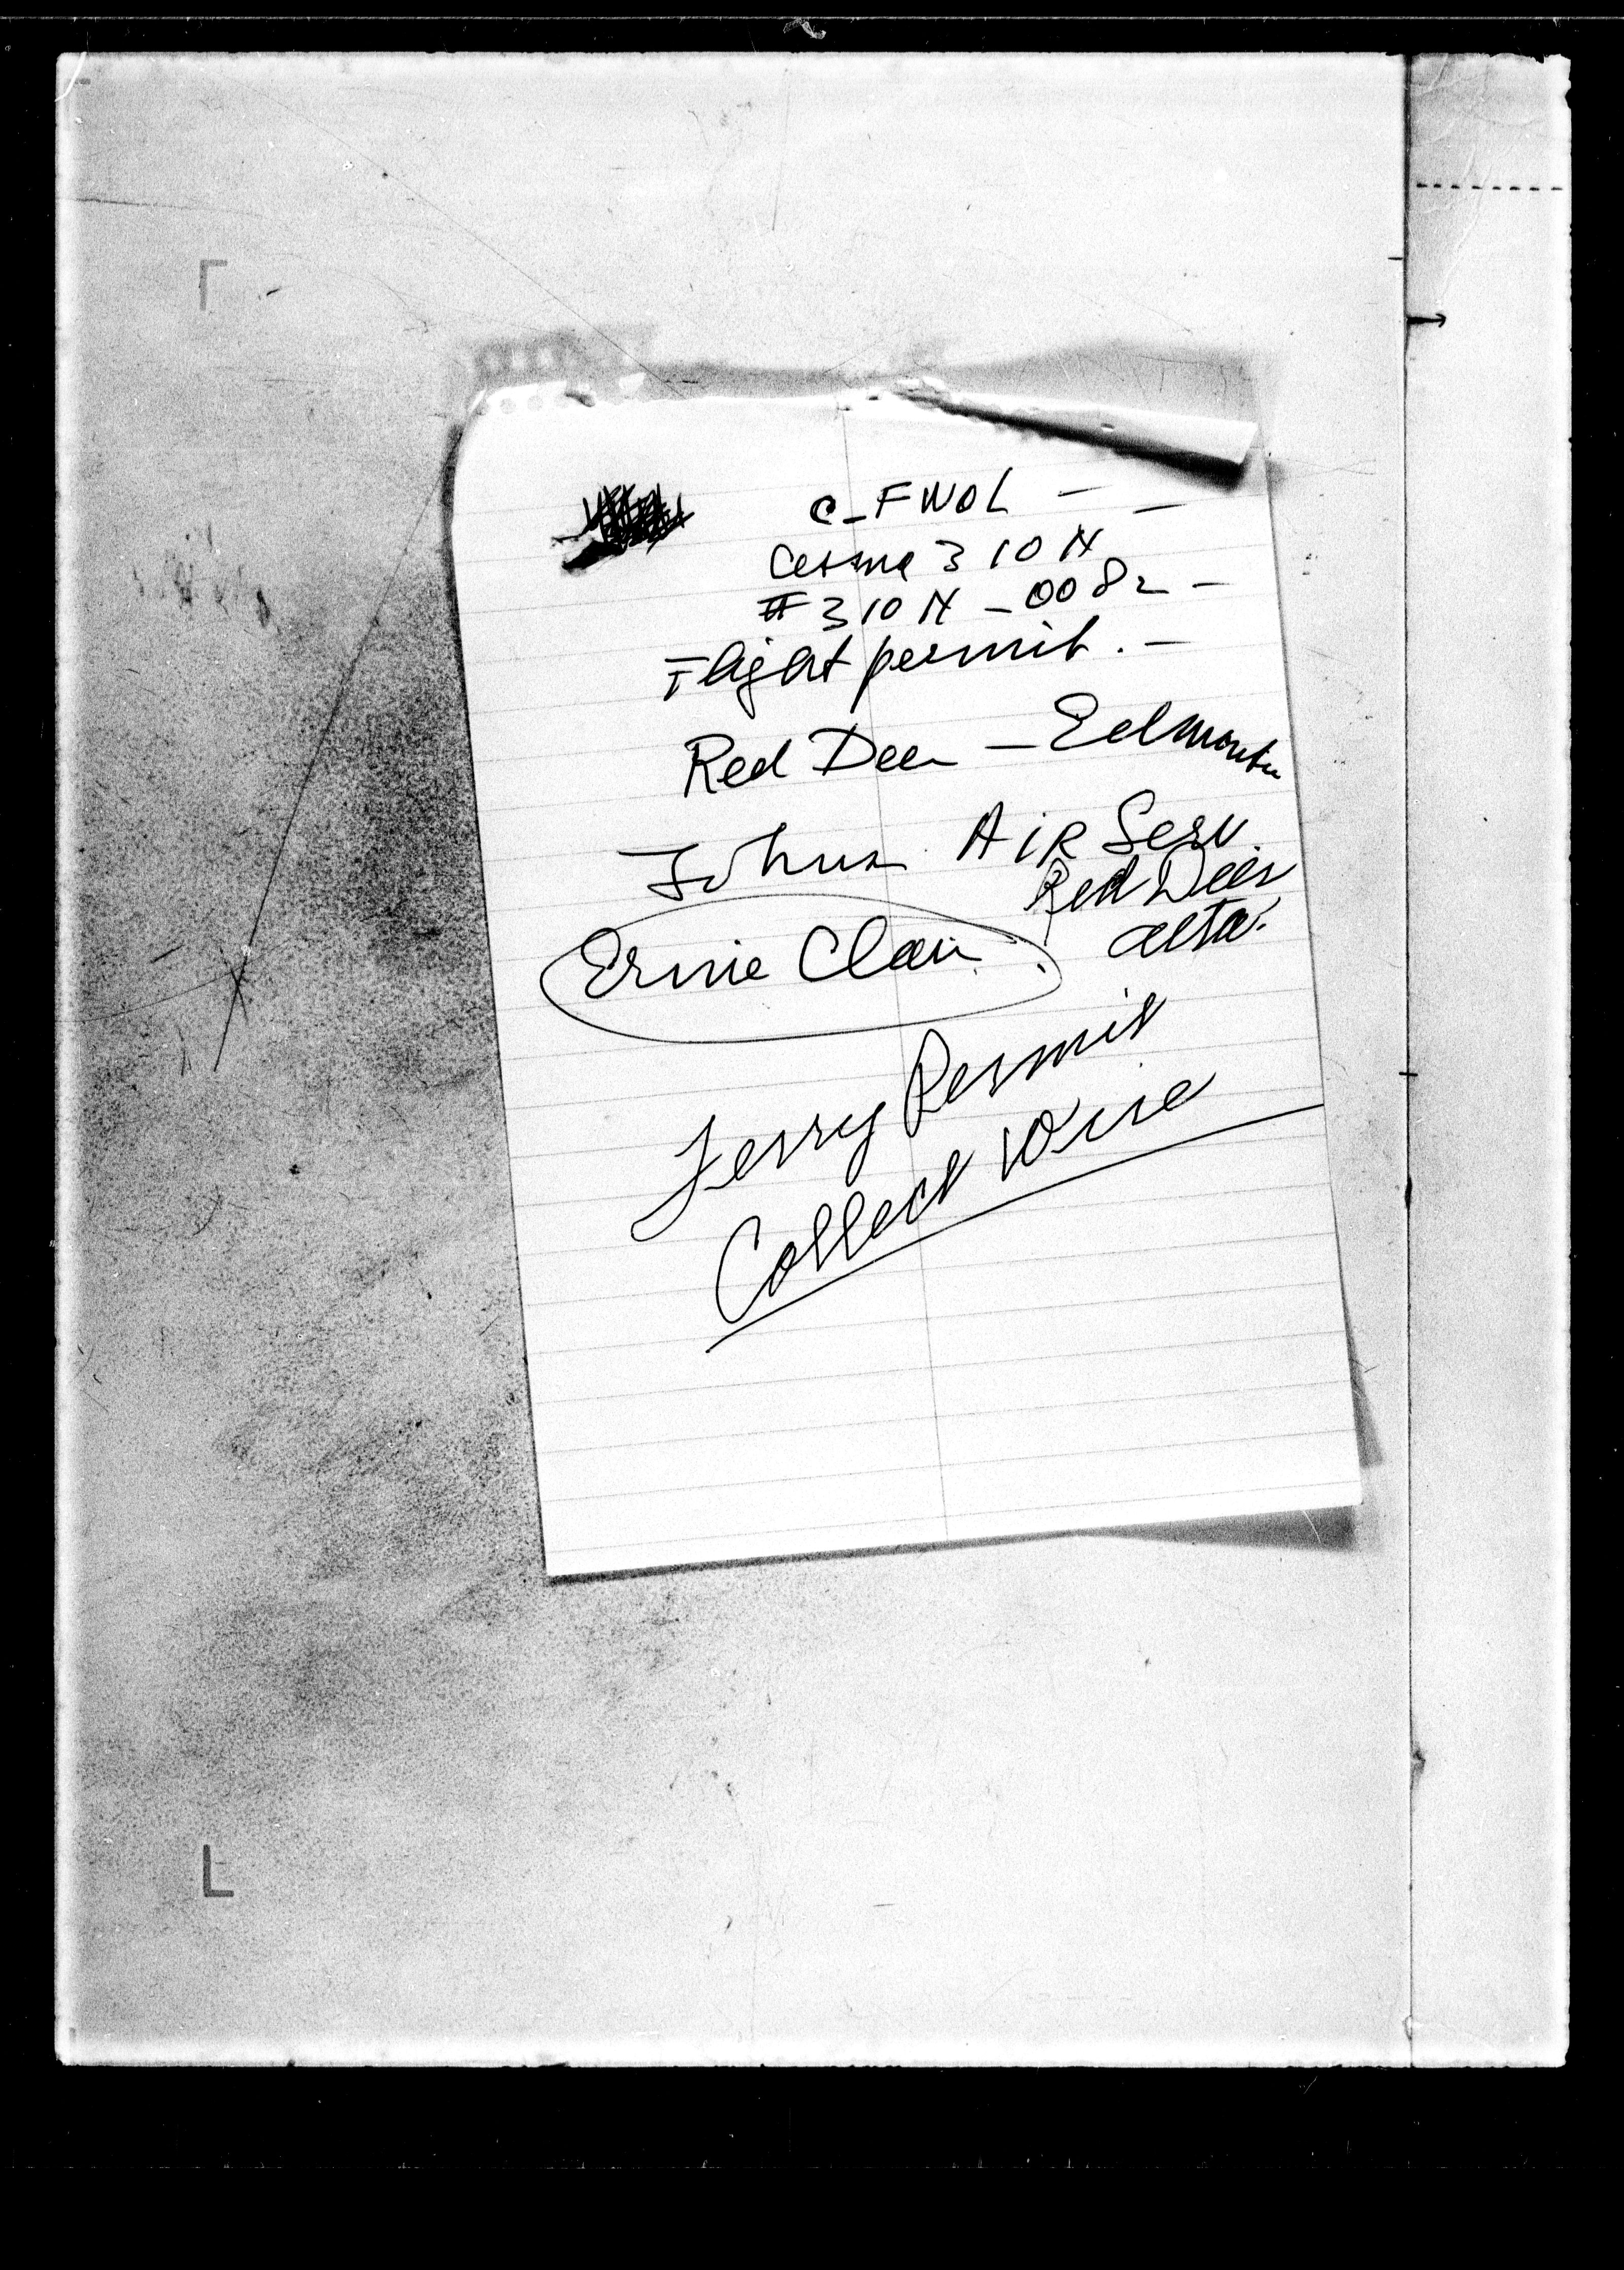 C-FWOL - -
Cessna 310N
#310N-0082 -
Flight permit. -
Red Deer - Edmonton
Johns Air Serv
Red Deer
Alta.
Ernie Clair
Ferry Permit
Collect Wire